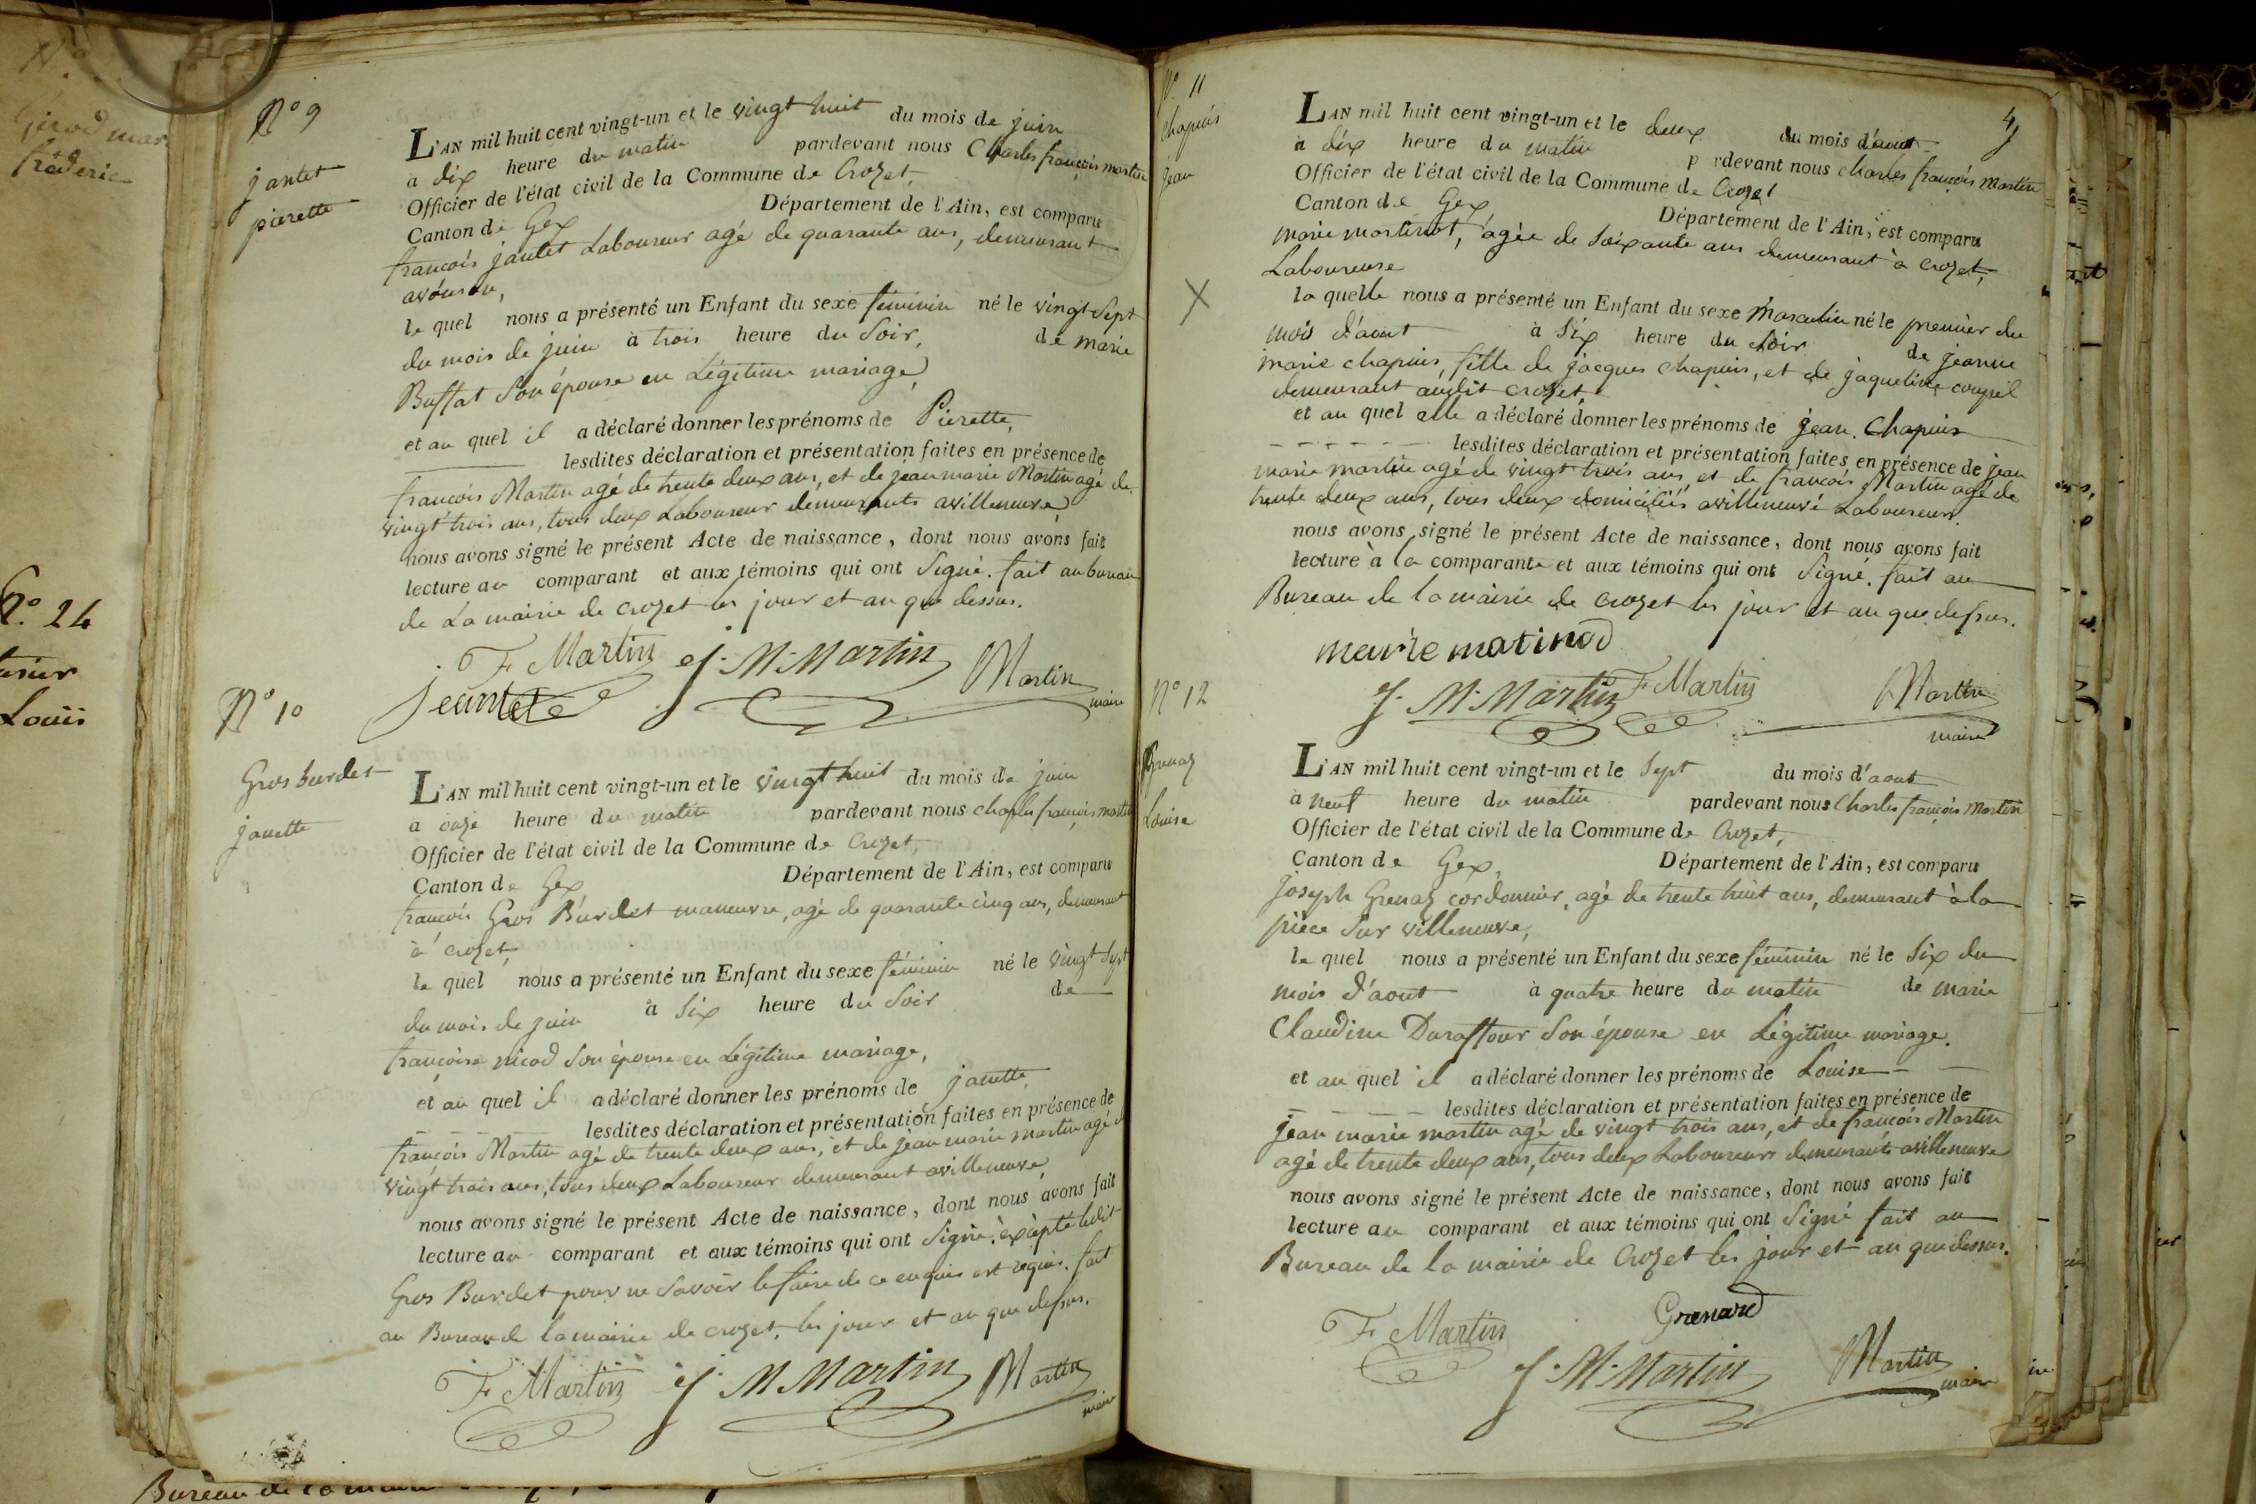 N° 9
jantet
pierette
L'AN mil huit cent vingt-un et le vingt huit du mois de juin
a dix heure du matin pardevant nous Charles françois martin
Officier de l'état civil de la Commune de Crozet,
Canton de Gex Département de l'Ain, est comparu
françois jantet Laboureur agé de quarante ans, demeurant
avouson,
le quel nous a présenté un Enfant du sexe féminin né le vingt Sept
du mois de juin à trois heure du Soir, de marie
Buffat Son épouse en Légitime mariage,
et au quel il a déclaré donner les prénoms de Pierette,
lesdites déclaration et présentation faites en présence de
françois Martin agé de trente deux ans, et de jean marie Martin agé de
vingt trois ans, tous deux Laboureur demeurants avilleneuve,
nous avons signé le présent Acte de naissance, dont nous avons fait
lecture au comparant et aux témoins qui ont Signé. fait au bureau
de La mairie de crozet les jour et an que dessus.
F Martin J. M. Martin Martin
jeantet maire
N° 10
Gros burdet
janette
L'AN mil huit cent vingt-un et le vingt huit du mois de juin
a onze heure du matin pardevant nous charles françois martin
Officier de l'état civil de la Commune de Crozet,
Canton de Gex Département de l'Ain, est comparu
francois Gros Burdet maneuvre, agé de quarante cinq ans, demeurant
à crozet,
le quel nous a présenté un Enfant du sexe féminin né le vingt Sept
du mois de juin à Six heure du Soir de
françoise nicod Son épouse en Légitime mariage,
et au quel il a déclaré donner les prénoms de janette,
lesdites déclaration et présentation faites en présence de
françois Martin agé de trente deux ans, et de jean marie martin agé de
vingt trois ans, tous deux Laboureur demeurant avilleneuve,
nous avons signé le présent Acte de naissance, dont nous avons fait
lecture au comparant et aux témoins qui ont Signé. èxcèpté ledit
Gros Burdet pour ne Savoir le faire de ce enquis est requis. fait
au Bureau de la mairie de crozet, les jour et an que dessus.
F Martin J. M Martin Martin
maire
N° 11
chapuis
jean
4
L'AN mil huit cent vingt-un et le deux du mois d'aout
a dix heure du matin p rdevant nous charles françois Martin
Officier de l'état civil de la Commune de Crozet
Canton de Gex Département de l'Ain, est comparu
marie martinot, agée de Soixante ans demeurant à crozet,
Laboureuse
X
la quelle nous a présenté un Enfant du sexe Masculin né le premier du
mois d'aout à Six heure du Soir de jeanne
marie chapuis, fille de jacques chapuis, et de jaqueline
demeurant audit crozet,
et au quel elle a déclaré donner les prénoms de jean. Chapuis
lesdites déclaration et présentation faites en présence de jean
marie martin agé de vingt trois ans, et de francois Martin agé de
trente deux ans, tous deux domiciliés avilleneuve Laboureur.
nous avons signé le présent Acte de naissance, dont nous avons fait
lecture à la comparante et aux témoins qui ont Signé. fait au
Bureau de la mairie de crozet les jour et an que dessus.
marie matinod
J. M. Martin F Martin Martin
maire
N° 12
Grenaz
Louise
L'AN mil huit cent vingt-un et le Sept du mois d'aout
a neuf heure du matin pardevant nous Charles françois Martin
Officier de l'état civil de la Commune de Crozet,
Canton de Gex, Département de l'Ain, est comparu
joseph Grenaz cordonnier, agé de trente huit ans, demeurant à la
pièce Sur villeneuve,
le quel nous a présenté un Enfant du sexe féminin né le Six du
mois d'aout à quatre heure du matin de marie
Claudine Duraffour Son épouse en Légitime mariage.
et au quel il a déclaré donner les prénoms de Louise
lesdites déclaration et présentation faites en présence de
jean marie martin agé de vingt trois ans, et de françois Martin
agé de trente deux ans, tous deux Laboureurs demeurants avilleneuve
nous avons signé le présent Acte de naissance, dont nous avons fait
lecture au comparant et aux témoins qui ont Signé fait au
Bureau de la mairie de Crozet les jour et an que dessus.
F Martin Grenard
J. M. Martin Martin
maire
N°. 24
Louis